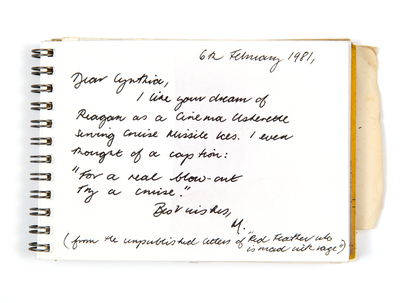 6th February 1981,
Dear Cynthia,
I like your dream of
Reagan as a Cinema Usherette
serving Cruise Missile Ices. I even
thought of a caption:
"For a real blow-out
Try a cruise."
Best wishes,
M.
(from the unpublished letters of "Red Feather who
is mad with rage")